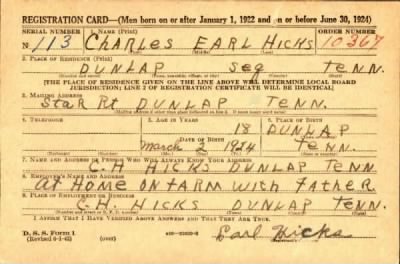 REGISTRATION CARD—(Men born on or after January 1, 1922 and on or before June 30, 1924)
SERIAL NUMBER 1. NAME (Print) ORDER NUMBER
N 113 CHARLES EARL HICKS 10367
2. PLACE OF RESIDENCE (Print)
DUNLAP Seq TENN.
[THE PLACE OF RESIDENCE GIVEN ON THE LINE ABOVE WILL DETERMINE LOCAL BOARD
JURISDICTION; LINE 2 OF REGISTRATION CERTIFICATE WILL BE IDENTICAL]
3. MAILING ADDRESS
Star Rt DUNLAP TENN.
4. TELEPHONE 5. AGE IN YEARS 6. PLACE OF BIRTH
18 DUNLAP
DATE OF BIRTH
March 2 1924 TENN.
7. NAME AND ADDRESS OF PERSON WHO WILL ALWAYS KNOW YOUR ADDRESS
C.H HICKS DUNLAP TENN
8. EMPLOYER'S NAME AND ADDRESS
At Home ON FARM with FATHER
9. PLACE OF EMPLOYMENT OR BUSINESS
C.H. HICKS DUNLAP TENN.
I AFFIRM THAT I HAVE VERIFIED ABOVE ANSWERS AND THAT THEY ARE TRUE.
D. S. S. Form 1
(Revised 6-9-42) (over)
Earl Hicks